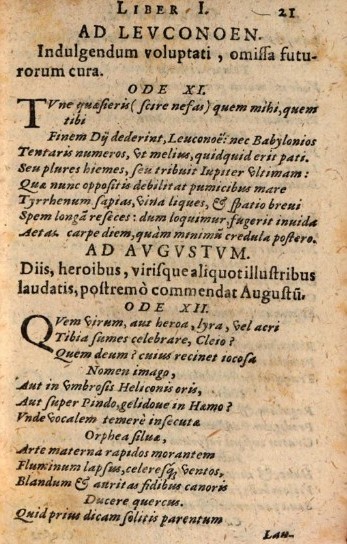 LIBER I. 21
AD LEVCONOEN.
Indulgendum voluptati, omissa futu-
rorum cura.
ODE XI.
TVne quæsieris (scire nefas) quem mihi, quem
tibi
Finem Dij dederint, Leuconoë: nec Babylonios
Tentaris numeros, vt melius, quidquid erit pati.
Seu plures hiemes, seu tribuit Iupiter vltimam:
Quæ nunc oppositis debilitat pumicibus mare
Tyrrhenum sapias, vina liques, & spatio breui
Spem longā reseces: dum loquimur, fugerit inuida
Aetas. carpe diem, quàm minimũ credula postero.
AD AVGVSTVM.
Diis, heroibus, virisque aliquot illustribus
laudatis, postremò commendat Augustũ.
ODE XII.
QVem virum, aut heroa, lyra, vel acri
Tibia sumes celebrare, Cleio?
Quem deum? cuius recinet iocosa
Nomen imago,
Aut in vmbrosis Heliconis oris,
Aut super Pindo, gelidoue in Hæmo?
Vnde vocalem temerè insecutæ
Orphea siluæ,
Arte materna rapidos morantem
Fluminum lapsus, celeresq; ventos,
Blandum & auritas fidibus canoris
Ducere quercus.
Quid prius dicam solitis parentum
Lau-